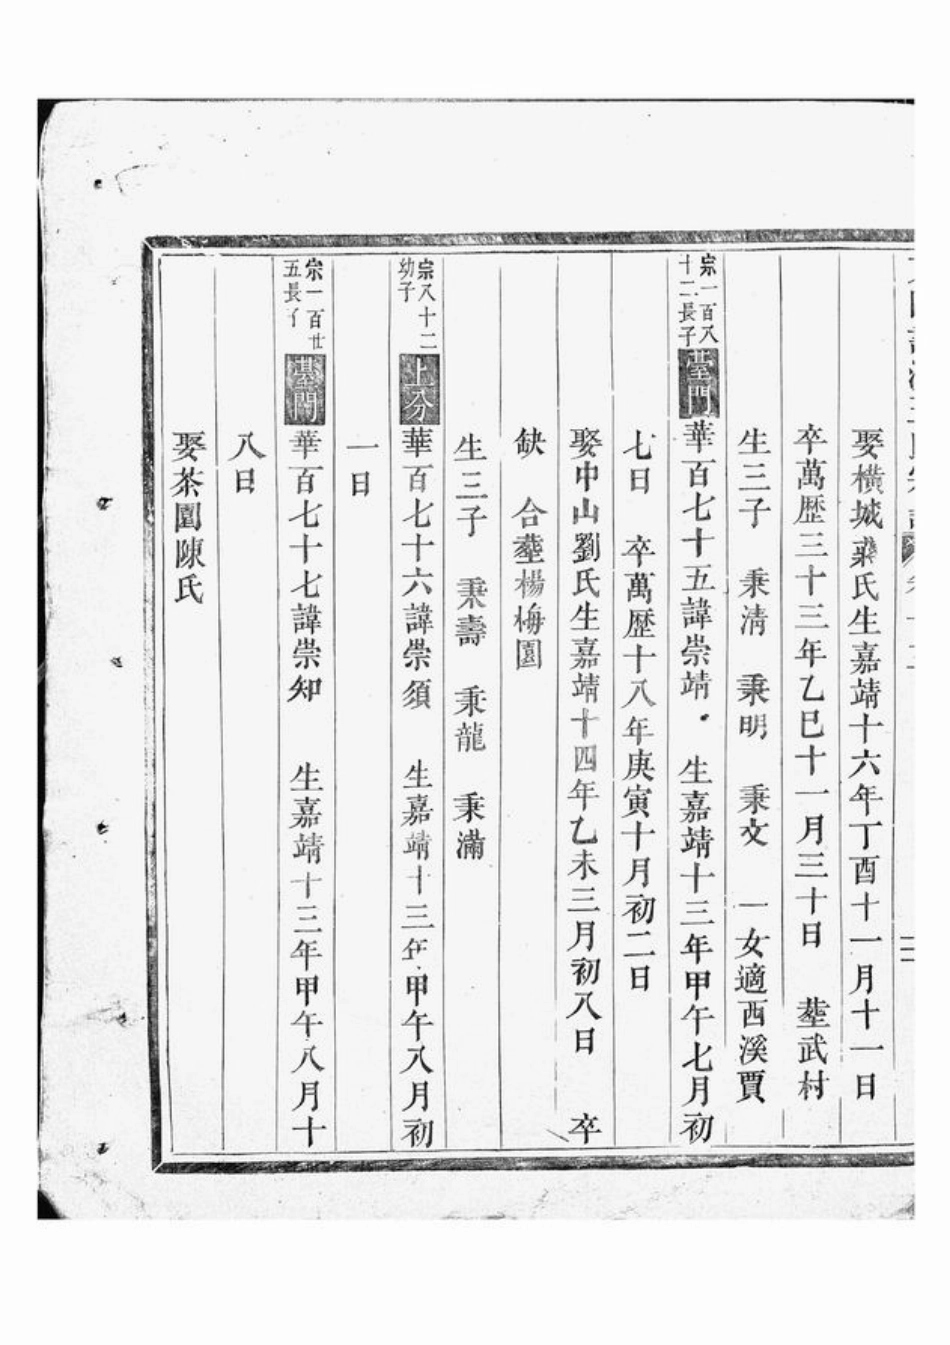 娶橫城蔣氏生嘉靖十六年丁酉十一月十一日
卒萬歷三十三年乙巳十一月三十日 塟武村
生三子 秉清 秉明 秉文 一女適西溪賈
宗一百八十二長子 臺門 華百七十五諱崇靖 生嘉靖十三年甲午七月初
七日 卒萬歷十八年庚寅十月初二日
娶中山劉氏生嘉靖十四年乙未三月初八日 卒
缺 合塟楊梅園
生三子 秉壽 秉龍 秉滿
宗八十二幼子 上分 華百七十六諱崇須 生嘉靖十三年甲午八月初
一日
宗一百廿五長 臺門 華百七十七諱崇知 生嘉靖十三年甲午八月十
八日
娶茶園陳氏